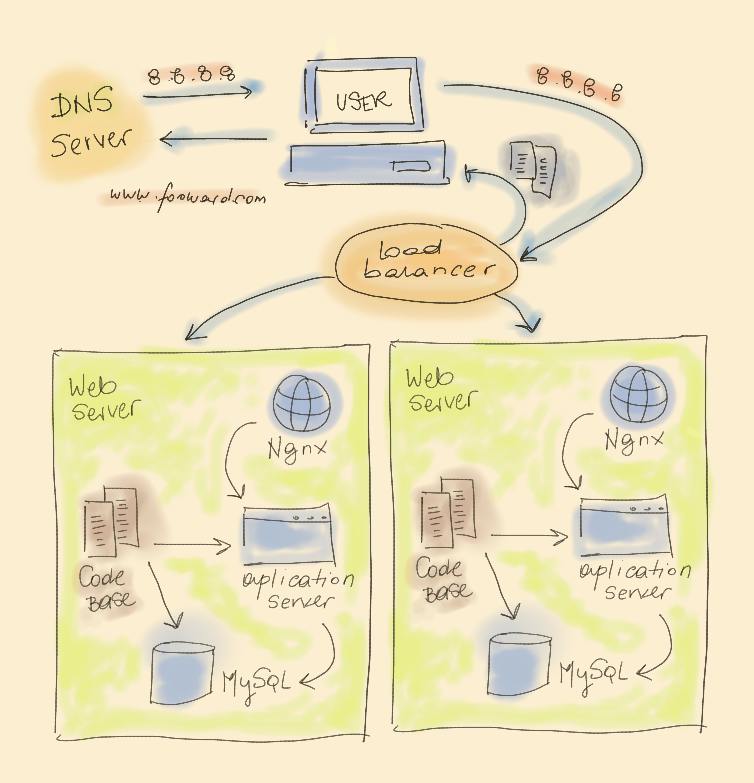 8.8.8.8
8.8.8.8
DNS
Server
USER
www.fooward.com
load
balancer
Web
Server
Ngnx
Code
Base
aplication
server
MySQL
Web
Server
Ngnx
Code
Base
aplication
server
MySQL